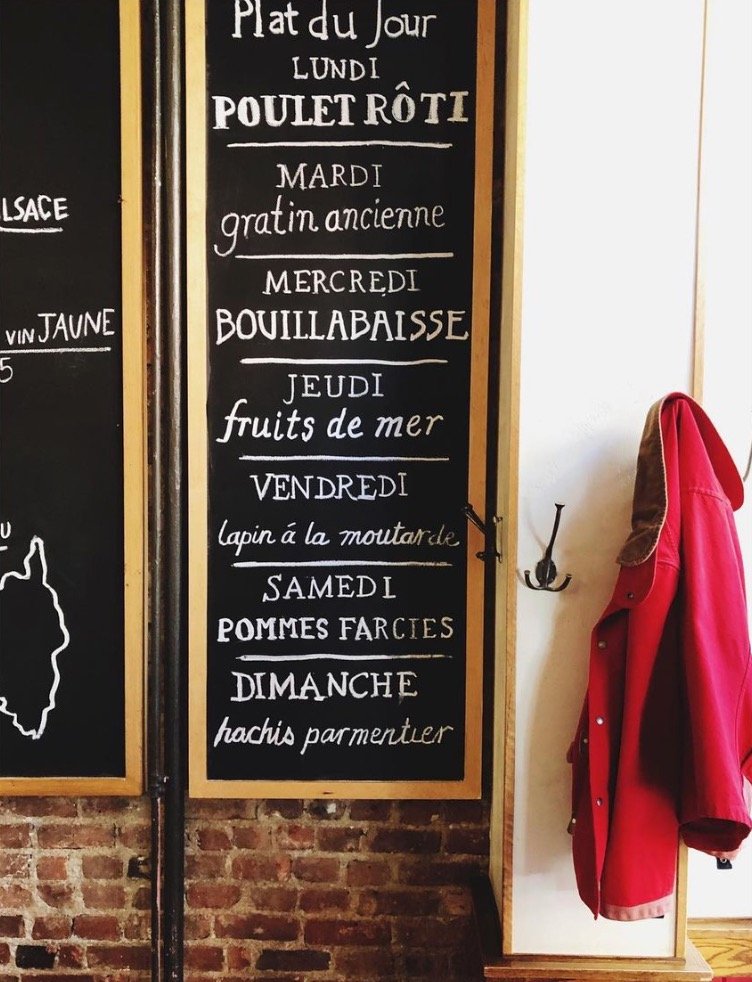 LSACE
VIN JAUNE
5
U
Plat du Jour
LUNDI
POULET RÔTI
MARDI
gratin ancienne
MERCREDI
BOUILLABAISSE
JEUDI
fruits de mer
VENDREDI
lapin á la moutarde
SAMEDI
POMMES FARCIES
DIMANCHE
hachis parmentier